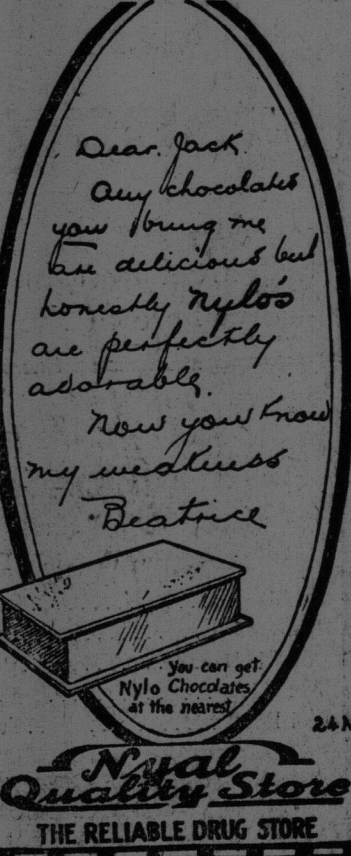 Dear Jack
Any chocolates
you bring me
are delicious but
honestly Nylo's
are perfectly
adorable.
Now you know
my weakness
Beatrice
You can get
Nylo Chocolates
at the nearest
Nyal
Quality Store
THE RELIABLE DRUG STORE